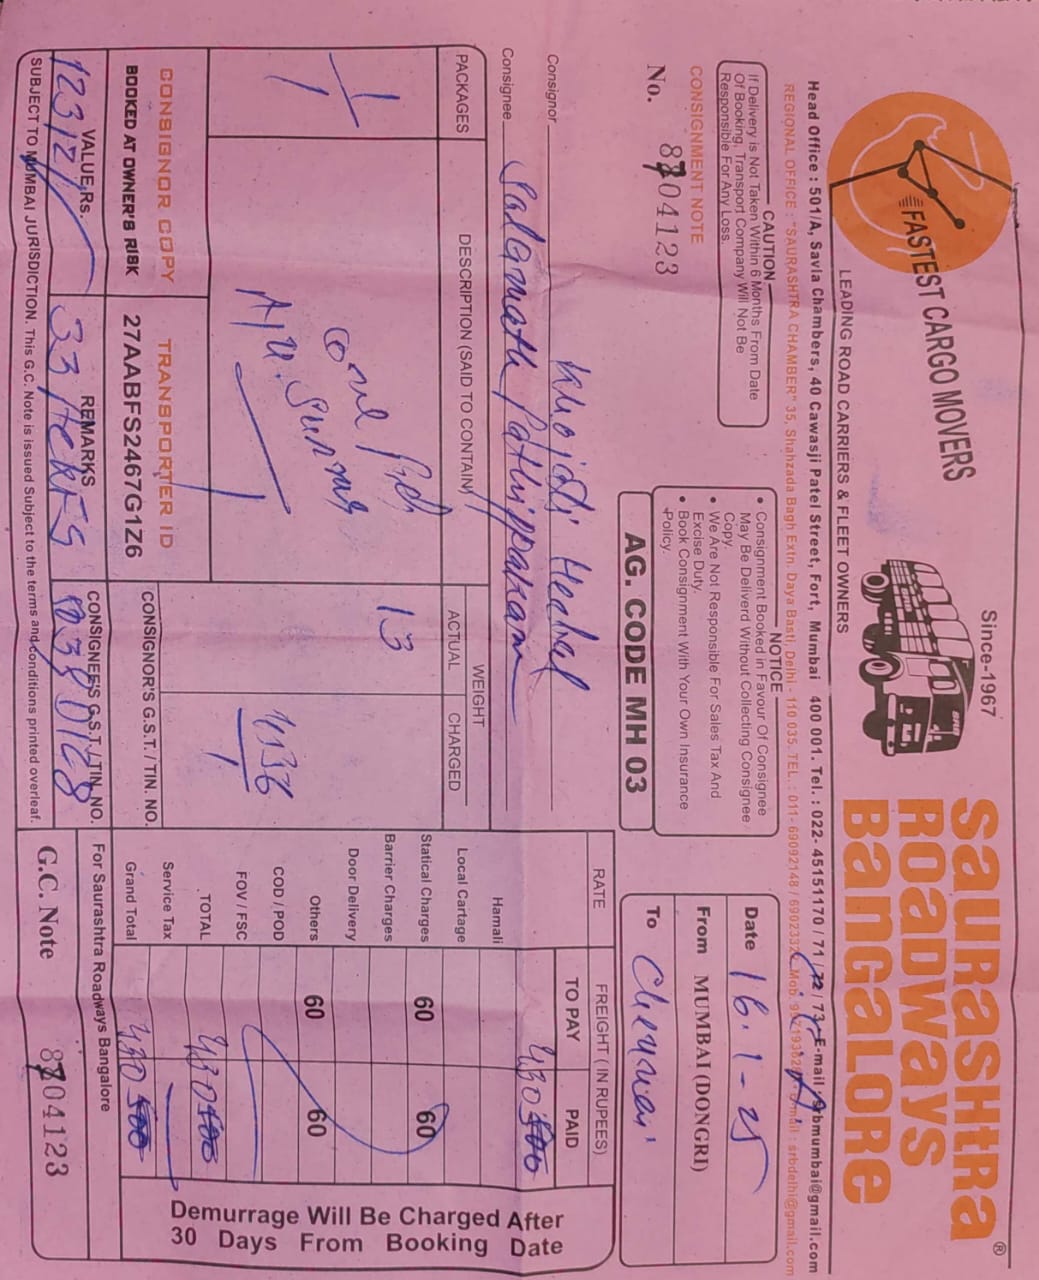 FASTEST CARGO MOVERS
Since-1967
SAURASHTRA
ROADWAYS
BANGALORE
®
LEADING ROAD CARRIERS & FLEET OWNERS
Head Office : 501/A, Savla Chambers, 40 Cawasji Patel Street, Fort, Mumbai 400 001. Tel. : 022- 45151170 / 71 / 72 / 73 E-mail : srbmumbai@gmail.com
REGIONAL OFFICE : "SAURASHTRA CHAMBER" 35, Shahzada Bagh Extn. Daya Basti, Delhi - 110 035. TEL. : 011- 69092148 /
srbdelhi@gmail.com
CAUTION
If Delivery is Not Taken Within 6 Months From Date
Of Booking, Transport Company Will Not Be
Responsible For Any Loss.
NOTICE
• Consignment Booked in Favour Of Consignee
May Be Deliverd Without Collecting Consignee
Copy.
• We Are Not Responsible For Sales Tax And
Excise Duty.
• Book Consignment With Your Own Insurance
Policy.
Date 16-1-25
From MUMBAI (DONGRI)
To Chennai
CONSIGNMENT NOTE
No. 8704123
AG. CODE MH 03
Consignor
Consignee Salamath Pathippakam
PACKAGES
DESCRIPTION (SAID TO CONTAIN)
WEIGHT
ACTUAL
CHARGED
RATE
FREIGHT ( IN RUPEES)
TO PAY
PAID
1/1
one
13
Hamali
430
Local Cartage
Statical Charges 60 60
Barrier Charges
Door Delivery
Others 60 60
COD / POD
FOV / FSC
TOTAL 430
Service Tax
Grand Total 430
CONSIGNOR COPY
BOOKED AT OWNER'S RISK
TRANSPORTER ID
27AABFS2467G1Z6
CONSIGNOR'S G.S.T. / TIN. NO.
VALUE Rs.
1232/
REMARKS
CONSIGNEE'S G.S.T. / TIN. NO.
For Saurashtra Roadways Bangalore
G.C. Note 8704123
SUBJECT TO MUMBAI JURISDICTION. This G.C. Note is issued Subject to the terms and conditions printed overleaf.
Demurrage Will Be Charged After
30 Days From Booking Date